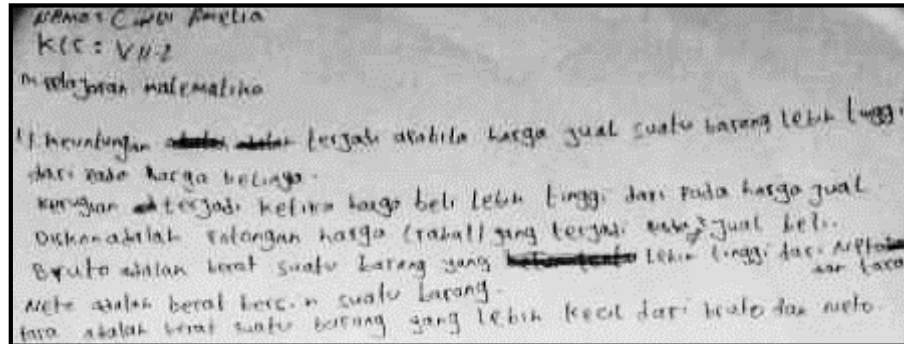 NAMA: Amelia
KLS: VII-2
M. pelajaran matematika
1. keuntungan terjadi apabila harga jual suatu barang lebih tinggi
dari pada harga belinya.
kerugian terjadi ketika harga beli lebih tinggi dari pada harga jual.
Diskon adalah potongan harga (rabat) yang terjadi pada jual beli.
Bruto adalah berat suatu barang yang lebih tinggi dari Neto
dan tara
Neto adalah berat bersih suatu barang.
tara adalah berat suatu barang yang lebih kecil dari bruto dan neto.